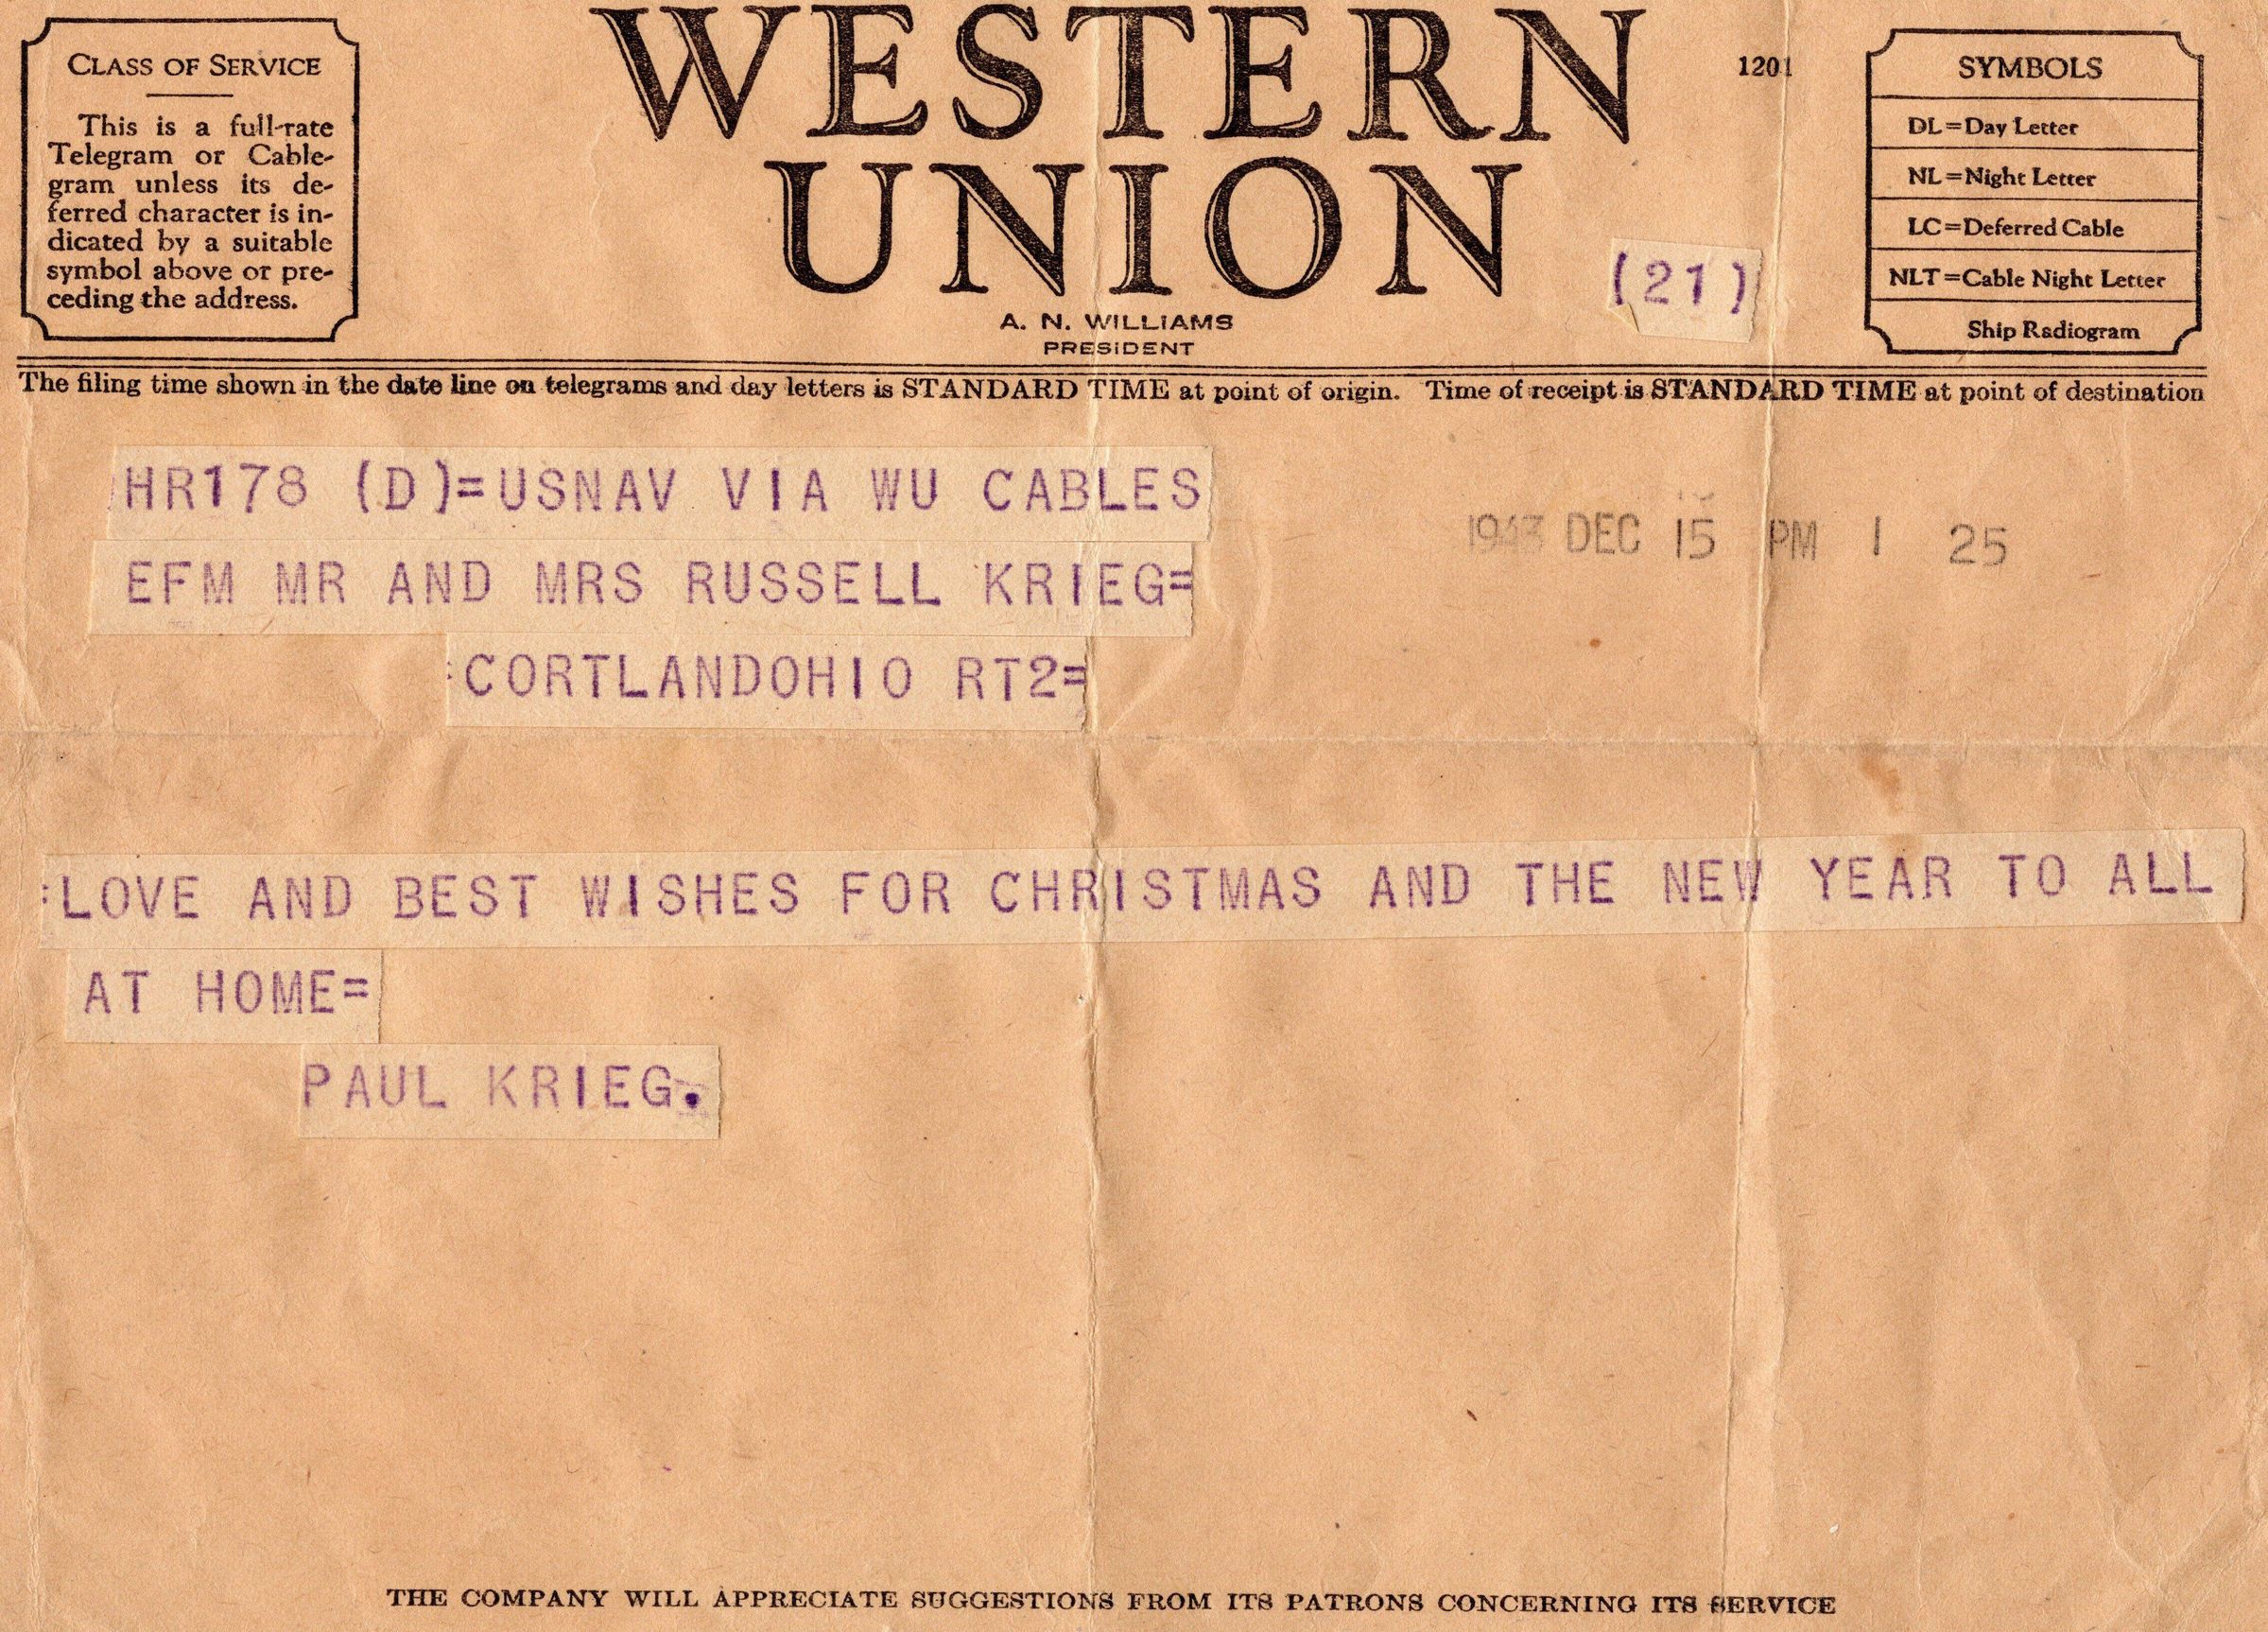 CLASS OF SERVICE
This is a full-rate
Telegram or Cable-
gram unless its de-
ferred character is in-
dicated by a suitable
symbol above or pre-
ceding the address.
WESTERN
UNION
A. N. WILLIAMS
PRESIDENT
1201
(21)
SYMBOLS
DL=Day Letter
NL=Night Letter
LC=Deferred Cable
NLT=Cable Night Letter
Ship Radiogram
The filing time shown in the date line on telegrams and day letters is STANDARD TIME at point of origin. Time of receipt is STANDARD TIME at point of destination
HR178 (D)=USNAV VIA WU CABLES
1943 DEC 15 PM 1 25
EFM MR AND MRS RUSSELL KRIEG=
:CORTLANDOHIO RT2=
:LOVE AND BEST WISHES FOR CHRISTMAS AND THE NEW YEAR TO ALL
AT HOME=
PAUL KRIEG.
THE COMPANY WILL APPRECIATE SUGGESTIONS FROM ITS PATRONS CONCERNING ITS SERVICE